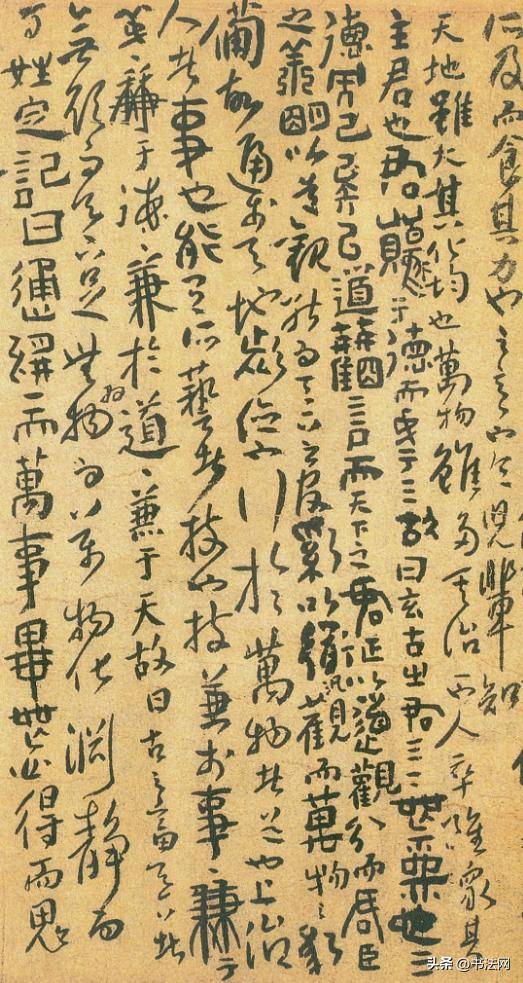 所及而食其力也
天地雖大其化均也萬物雖多其治一也人卒雖衆其
主君也君原于德而成于天故曰玄古之君天下無為也天
德而已矣以道觀言而天下之君正以道觀分而君臣
之義明以道觀能而天下之官治以道汎觀而萬物之應
備故通於天地者德也行於萬物者道也上治
人者事也能有所藝者技也技兼於事〻兼于
義〻兼于德〻兼於道〻兼于天故曰古之畜天下者
無欲而天下足無為而萬物化淵靜而
百姓定記曰通於一而萬事畢無心得而鬼
头条 @书法网